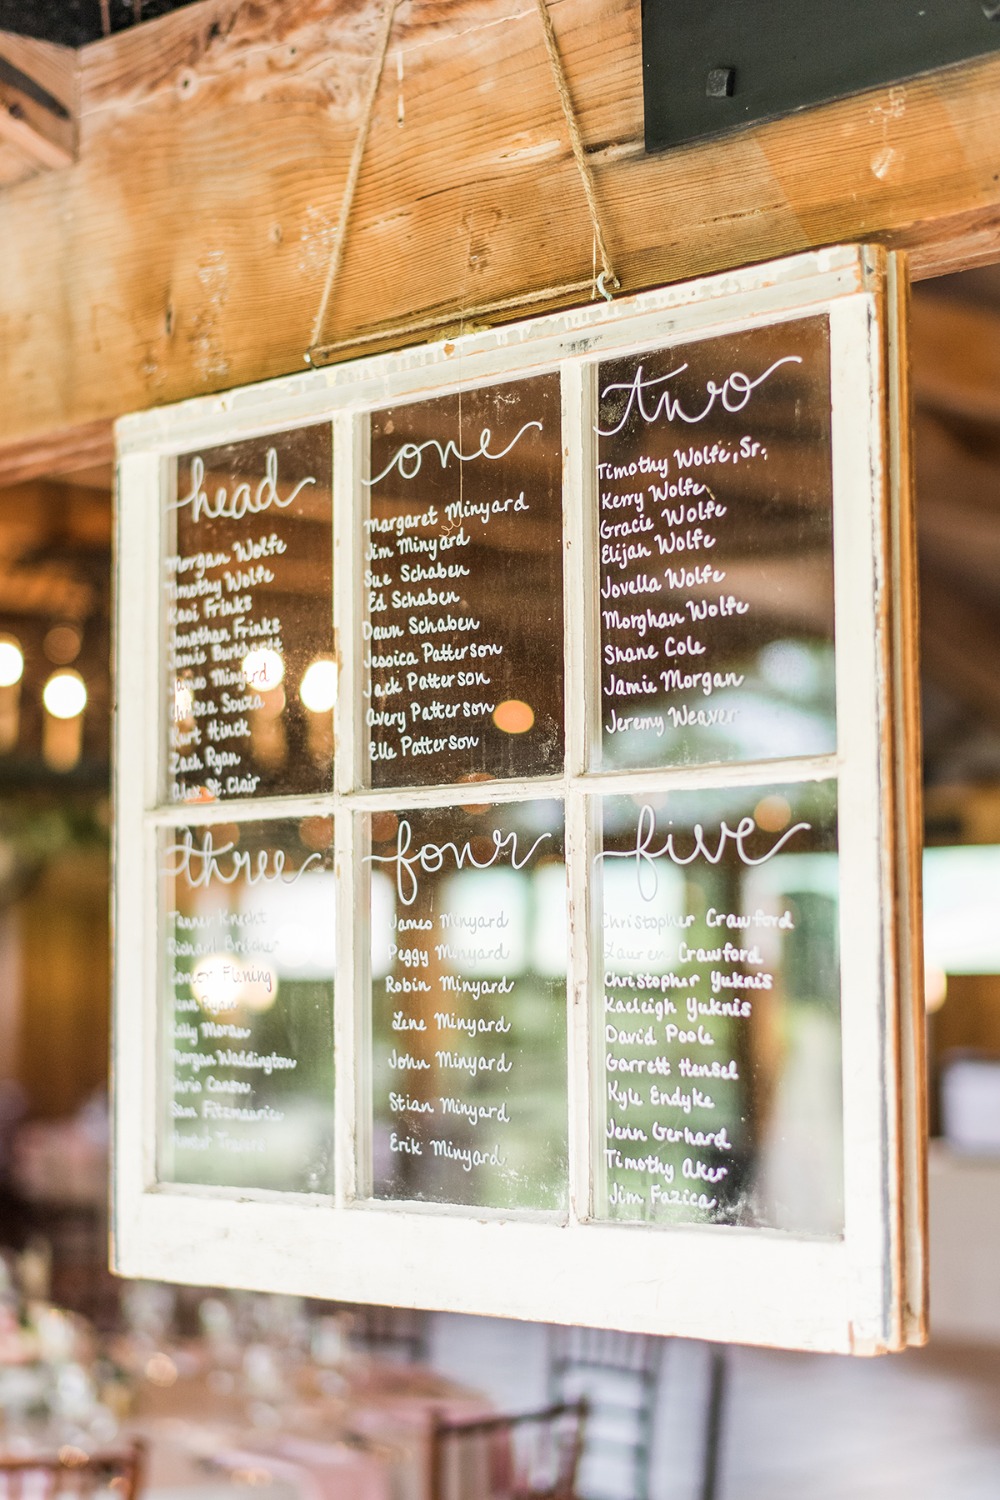 head
Morgan Wolfe
Timothy Wolfe
Kaoi Frinks
Jonathan Frinks
Jamie Burkhardt
James Minyard
Chelsea Souza
Kurt Hinck
Zach Ryan
Alex St. Clair
one
Margaret Minyard
Jim Minyard
Sue Schaben
Ed Schaben
Dawn Schaben
Jessica Patterson
Jack Patterson
Avery Patterson
Elle Patterson
two
Timothy Wolfe, Sr.
Kerry Wolfe
Gracie Wolfe
Elijah Wolfe
Jovella Wolfe
Morghan Wolfe
Shane Cole
Jamie Morgan
Jeremy Weaver
three
Tanner Knecht
Richard
Conor Fleming
Jenn Ryan
Kelly Moran
Morgan Waddington
Chris Canon
Sam Fitzmaurice
four
James Minyard
Peggy Minyard
Robin Minyard
Lene Minyard
John Minyard
Stian Minyard
Erik Minyard
five
Christopher Crawford
Lauren Crawford
Christopher Yuknis
Kaeleigh Yuknis
David Poole
Garrett Hensel
Kyle Endyke
Jenn Gerhard
Timothy Aker
Jim Fazica